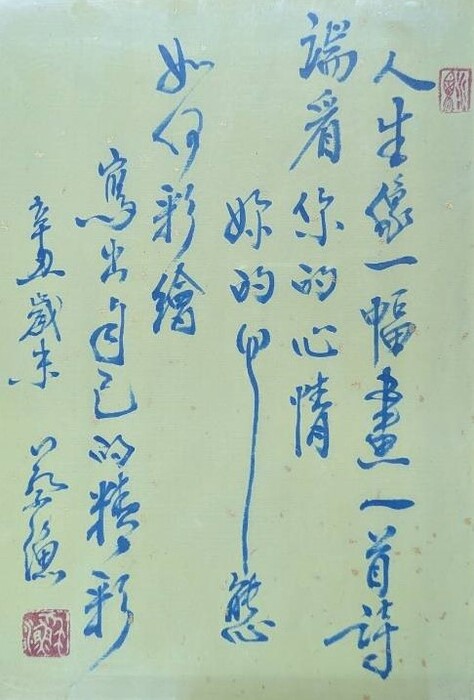 人生像一幅畫一首詩
端看你的心情
妳的態
如何彩繪
寫出自己的精彩
辛丑歲末